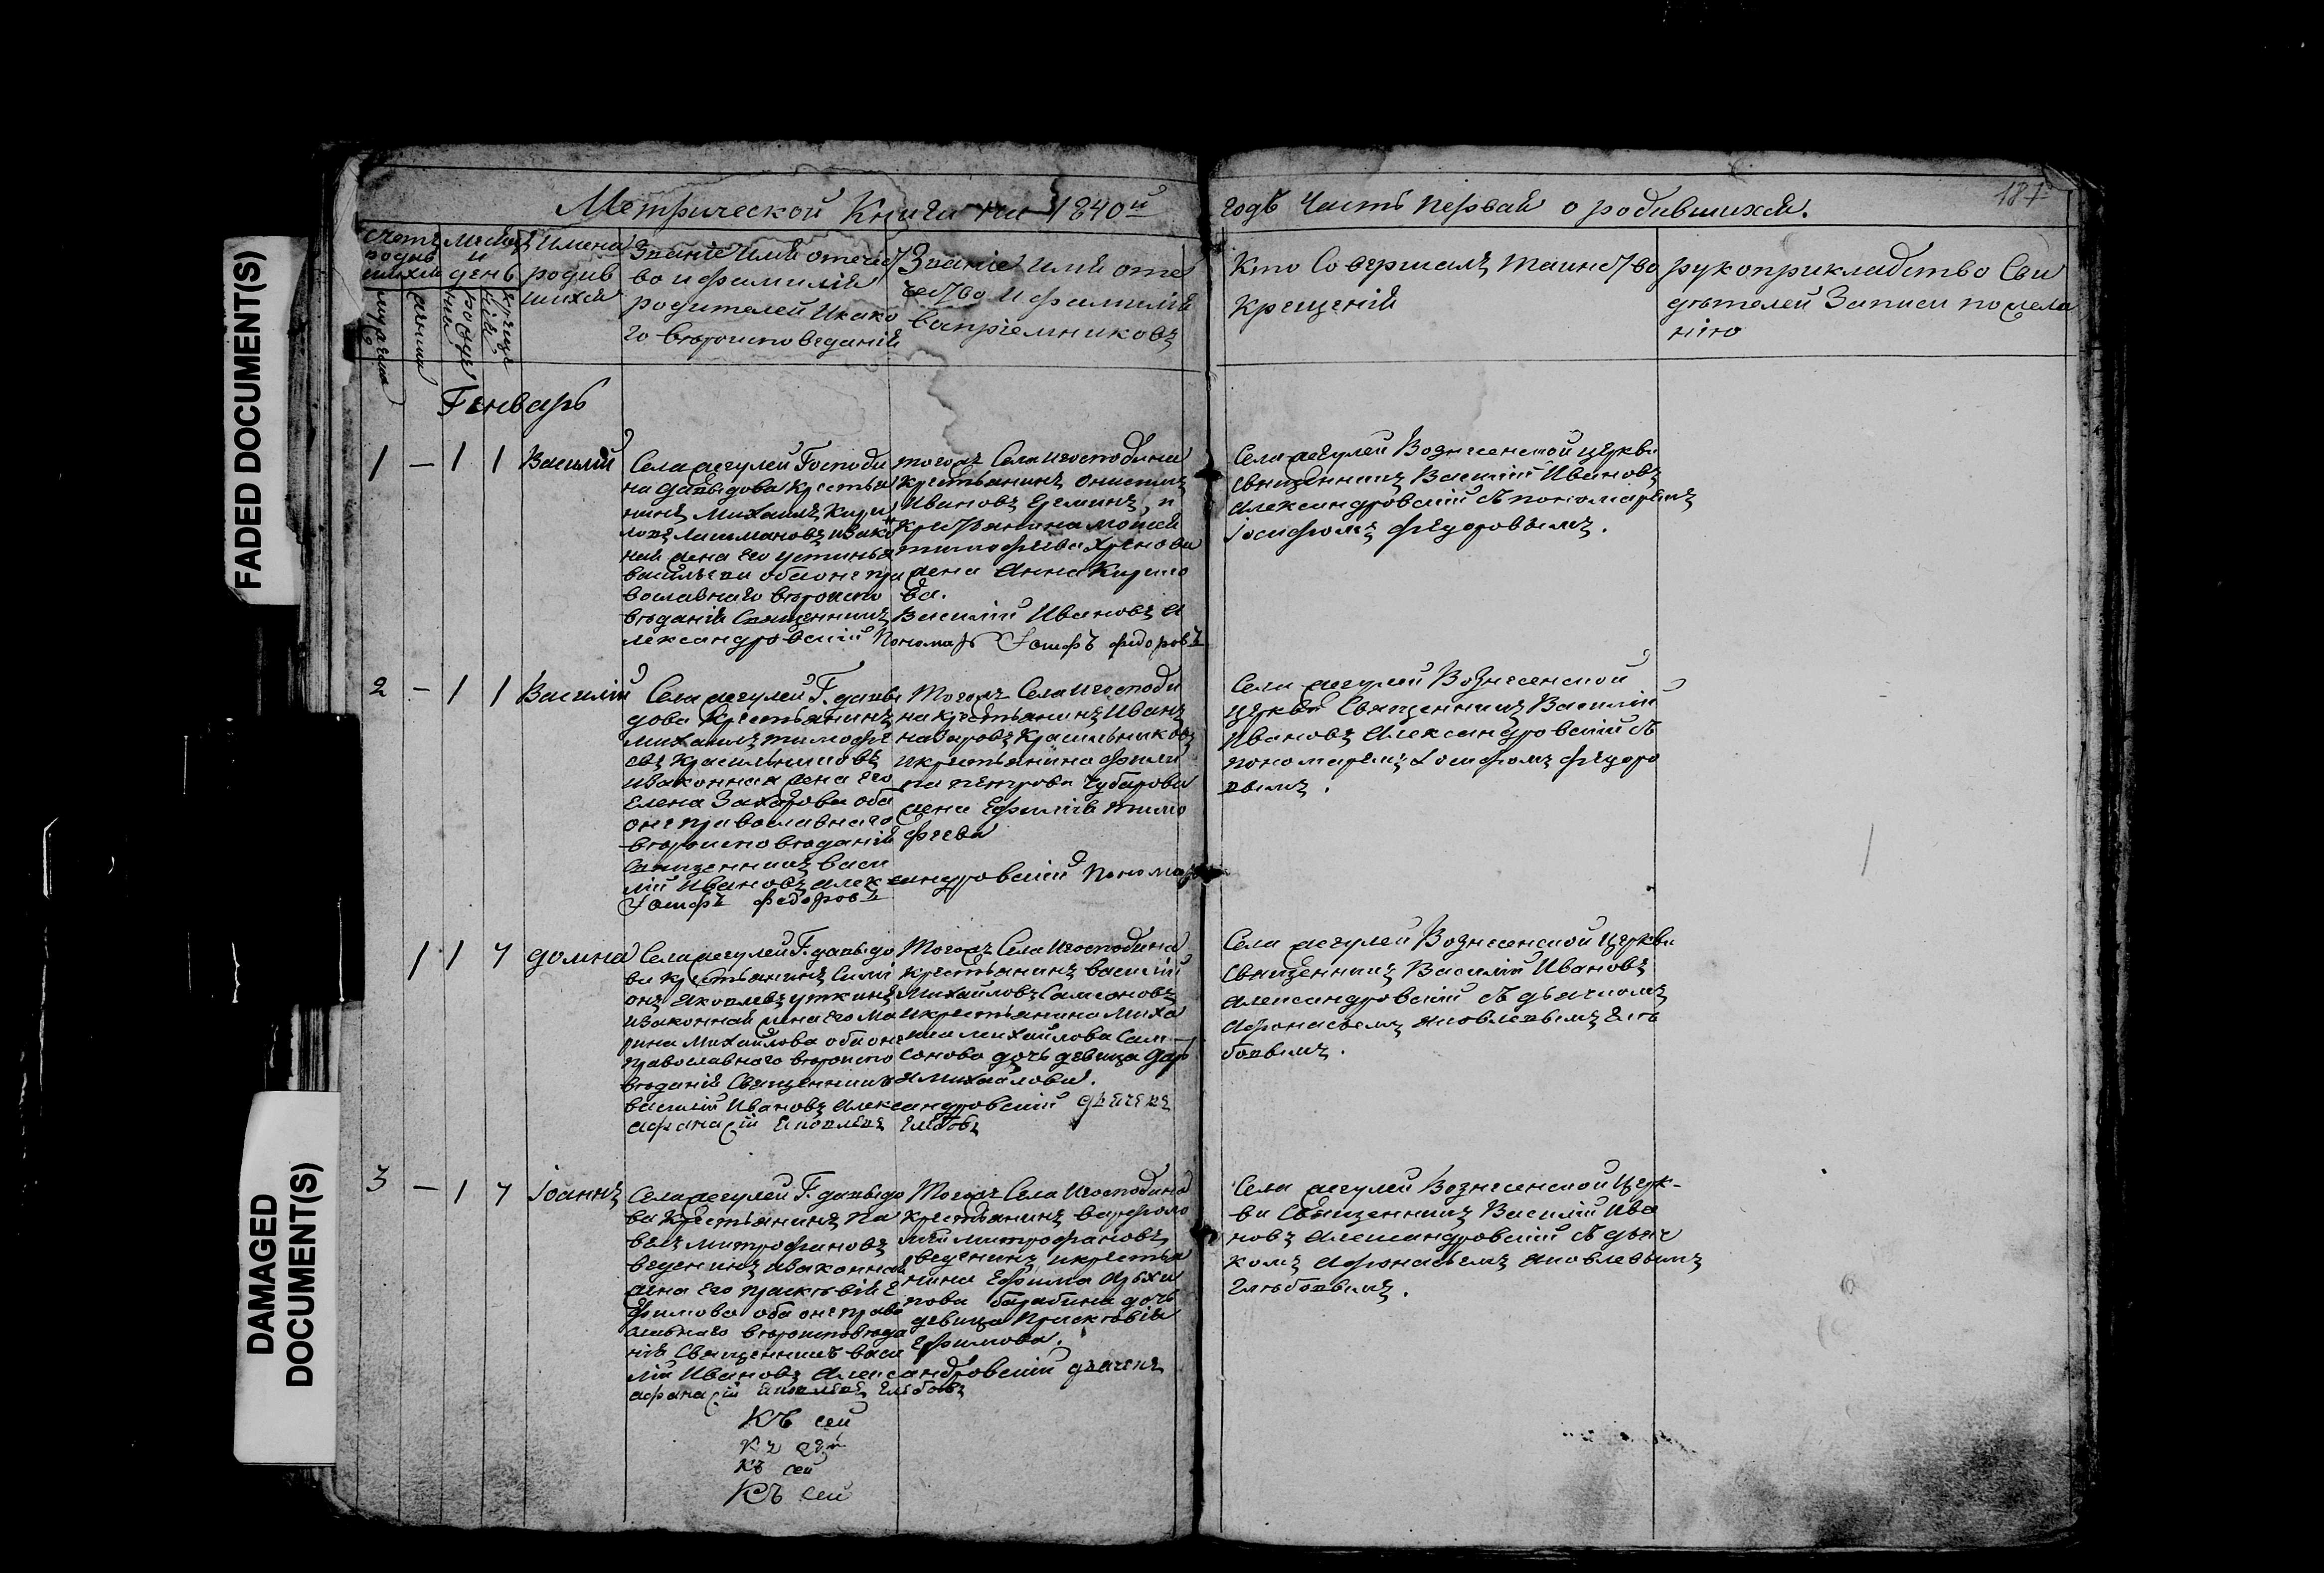 FADED DOCUMENT(S)
DAMAGED
DOCUMENT(S)
Метрической Книги на 1840й
годъ Часть первая о родившихся.
187
счетъ
родив
шихся
мужеска
женска
месяцъ
и
день
рожде
ния
креще
нія
Имена
родив
шихся
Званіе имя отечест
во и фамилія
родителей и како
го вероисповеданія
Званіе имя оте
чество и фамилія
воспріемниковъ
Кто Совершалъ таинство
крещенія
рукоприкладство Сви
детелей Записи по жела
нію
Генварь
1 — 1 1 Василій
Села жегулей Господи
на давыдова крестья
нинъ Михаилъ Кири
ловъ и зако
ная жена его устинья
васильева обаоне пра
вославнаго вероиспо
веданія Священникъ
Василій Ивановъ А
лександровскій Пономарь Іосифъ федоровъ
тогожъ Села игосподина
крестьянинъ онисимъ
Ивановъ Ереминъ, и
крестьянина моисея
тимофеева хренова
жена Анна Кирило
ва.
Села жегулей Вознесенской церкви
священникъ Василій Ивановъ
Александровскій съ пономаремъ
Іосифомъ федоровымъ.
2 — 1 1 Василій
Села жегулей Г. давы
дова Крестьянинъ
михаилъ тимофе
евъ Красильниковъ
изаконная жена его
Елена Захарова оба
оне православнаго
вероисповеданія
Священникъ васи
лій Ивановъ Александровскій Пономарь
Іосифъ федоровъ
Тогожъ Села игосподи
на крестьянинъ Иванъ
назаровъ Красильниковъ
икрестьянина фили
па петрова Чубарова
жена Ефимія тимо
феева
Села жегулей Вознесенской
церкви Священникъ Василій
Ивановъ Александровскій съ
пономаремъ Іосифомъ федоро
вымъ.
1 1 7 домна
Села жегулей Г. давыдо
ва крестьянинъ Симі
онъ Яковлевъ уткинъ
изаконная жена его Ма
рина Михайлова обаоне
православнаго вероиспо
веданія Священникъ
василій Ивановъ Александровскій дьячекъ
афанасій Яковлевъ Глебовъ
Тогожъ Села игосподина
крестьянинъ василій
Михайловъ Самсоновъ
икрестьянина Миха
ила михайлова Сам
сонова дочь девица дарь
я михайлова.
Села жегулей Вознесенской церкви
священникъ Василій Ивановъ
Александровскій съ дьячкомъ
Афонасьемъ Яковлевымъ Глѣ
бовымъ.
3 — 1 7 Іоаннъ
Села жегулей Г. давыдо
ва Крестьянинъ Па
велъ митрофановъ
веденинъ изаконная
жена его прасковія Е
фимова оба оне право
славнаго вероисповеда
нія Священникъ васи
лій Ивановъ Александровскій дьячекъ
афанасій Яковлевъ Глебовъ
Тогожъ Села игосподина
крестьянинъ варфоло
мей митрофановъ
веденинъ икрестья
нина Ефима Архи
пова барабина дочь
девица Прасковія
Ефимова.
Села жегулей Вознесенской Церк-
ви Священникъ Василій Ива
новъ Александровскій съ дьяч
комъ Афонасьемъ Яковлевымъ
Глѣбовымъ.
Къ сей
Къ сей
Къ сей
Къ сей